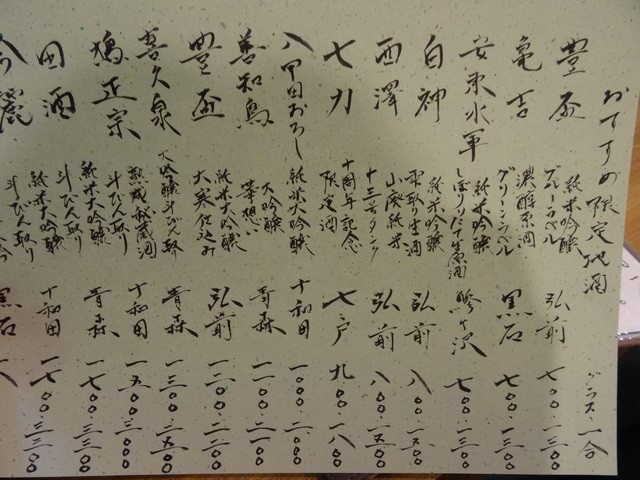 おすすめ限定地酒 グラス・一合
豊盃 純米吟醸 ブルーラベル 弘前 七〇〇・一三〇〇
亀吉 濃醇原酒 グリーンラベル 黒石 七〇〇・一三〇〇
安東水軍 純米吟醸 しぼりたて生原酒 鰺ヶ沢 七〇〇・一三〇〇
白神 純米吟醸 雫取り生酒 弘前 八〇〇・一五〇〇
西澤 山廃純米 十三号タンク 弘前 八〇〇・一五〇〇
七力 十周年記念 限定酒 七戸 九〇〇・一八〇〇
八甲田おろし 純米大吟醸 十和田 一〇〇〇・二〇〇〇
善知鳥 大吟醸 青森 一一〇〇・二一〇〇
豊盃 純米大吟醸 大寒仕込み 弘前 一二〇〇・二二〇〇
喜久泉 大吟醸斗びん取 熟成秘蔵酒 青森 一三〇〇・二五〇〇
鳩正宗 純米大吟醸 斗びん取り 十和田 一五〇〇・三〇〇〇
田酒 純米大吟醸 斗びん取り 青森 一七〇〇・三三〇〇
麗 純米大吟醸 斗びん取り 十和田 一七〇〇・三三〇〇
黒石